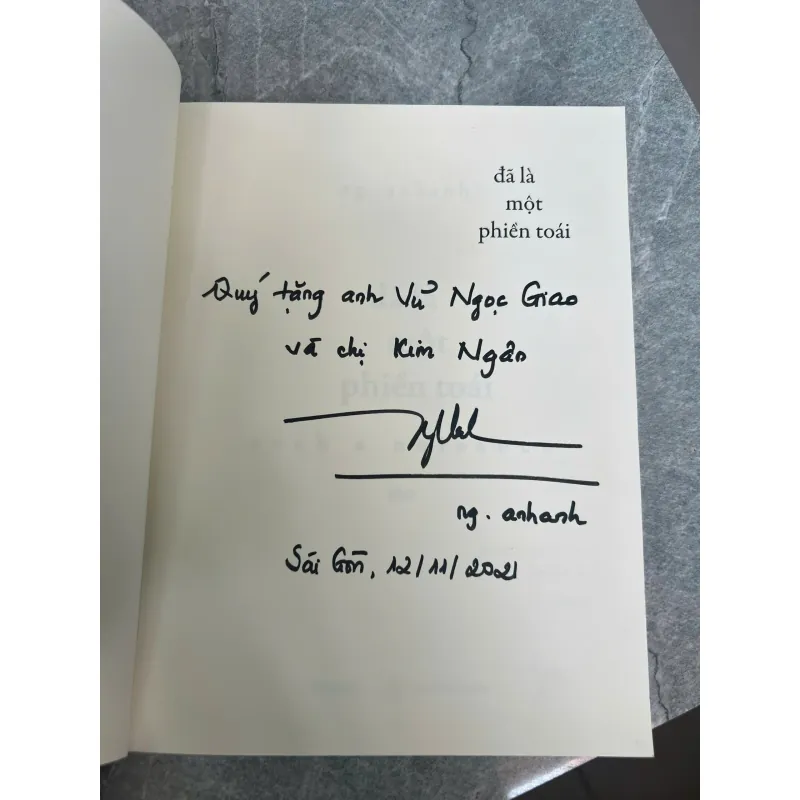 đã là
một
phiền toái
Quý tặng anh Vũ Ngọc Giao
và chị Kim Ngân
ng. anhanh
Sài Gòn, 12/11/2021